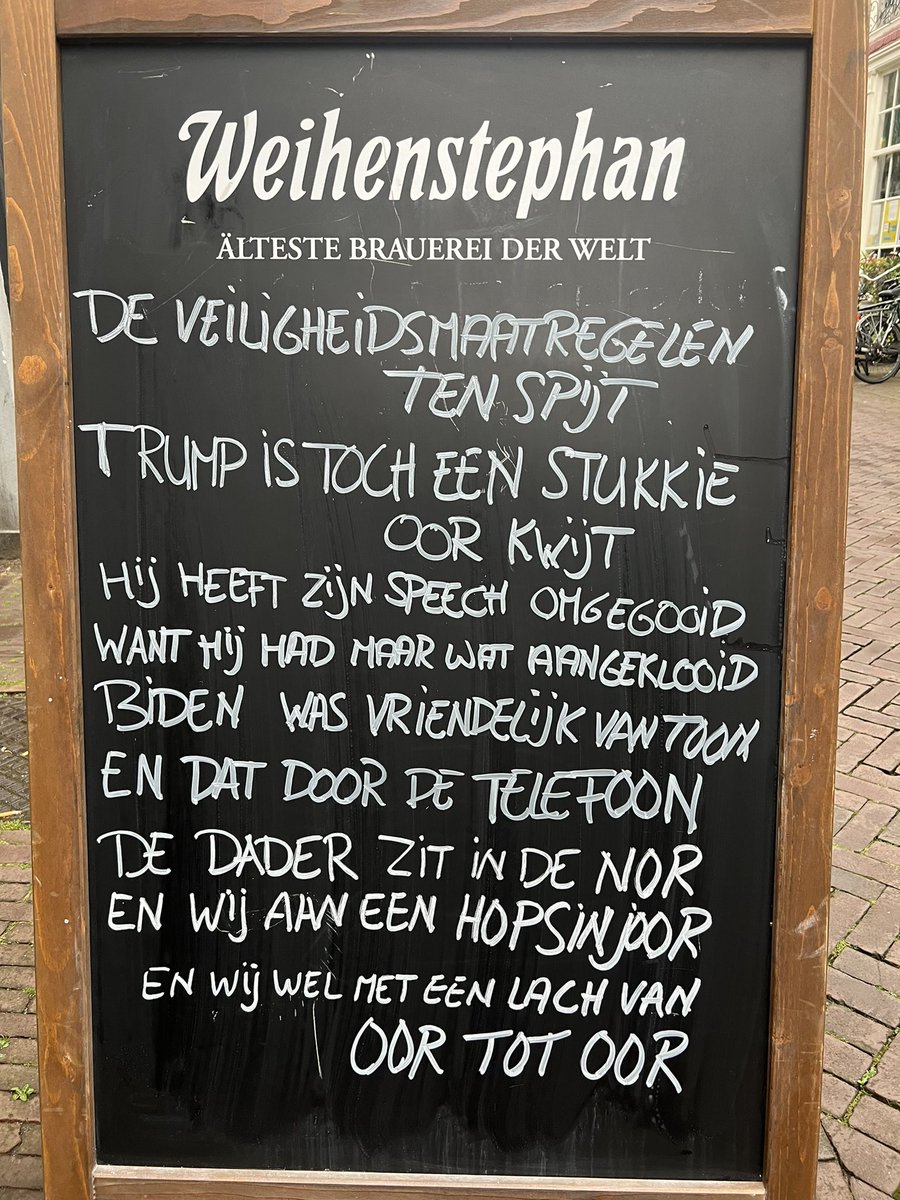 Weihenstephan
ÄLTESTE BRAUEREI DER WELT
DE VEILIGHEIDSMAATREGELEN
TEN SPIJT
TRUMP IS TOCH EEN STUKKIE
OOR KWIJT
HIJ HEEFT ZIJN SPEECH OMGEGOOID
WANT HIJ HAD MAAR WAT AANGEKLOOID
BIDEN WAS VRIENDELIJK VAN TOON
EN DAT DOOR DE TELEFOON
DE DADER ZIT IN DE NOR
EN WIJ AAN EEN HOPSINJOOR
EN WIJ WEL MET EEN LACH VAN
OOR TOT OOR